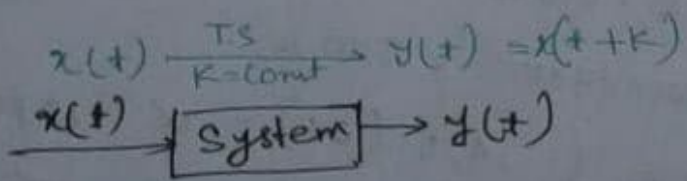 x(t) T.S K=Const y(t) = x(t+K)
x(t) System y(t)